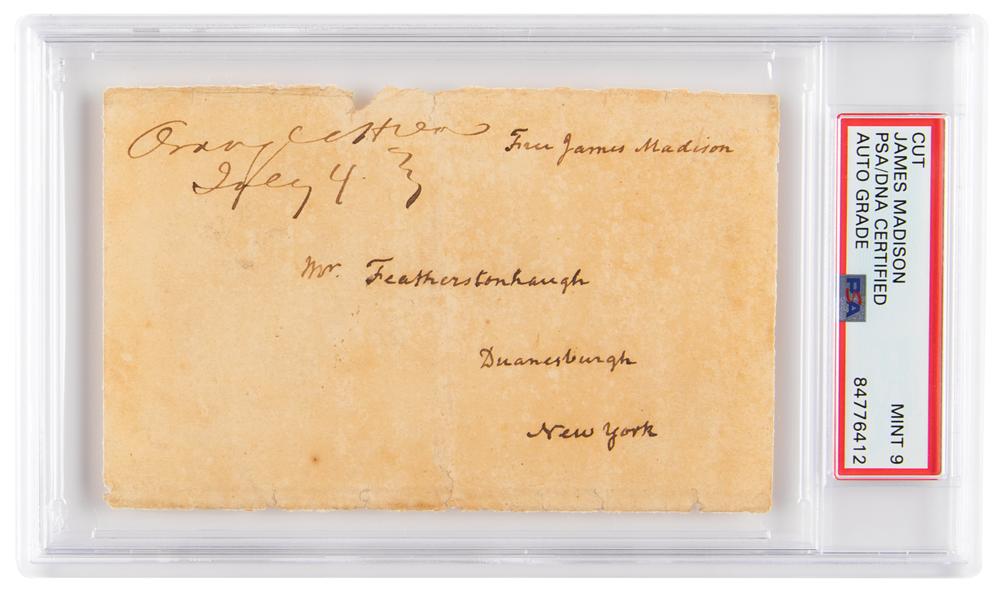 Orange CHva
July 4.
Free James Madison
Mr. Featherstonhaugh
Duanesburgh
New York
CUT
JAMES MADISON
PSA/DNA CERTIFIED
AUTO GRADE
MINT 9
84776412
PSA